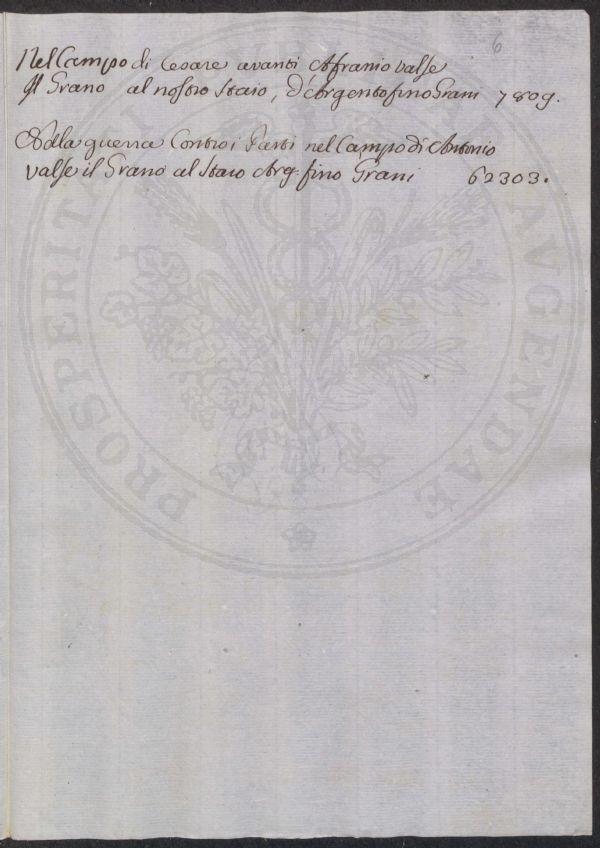 6
Nel Campo di Cesare avanti Afranio valse
Il Grano al nostro Staio, d'Argento fino Grani 7809.
Nella guerra Contro i Parti nel Campo di Antonio
valse il Grano al Staio Arg. fino Grani 62303.
PROSPERITATI PUBLICAE AUGENDAE